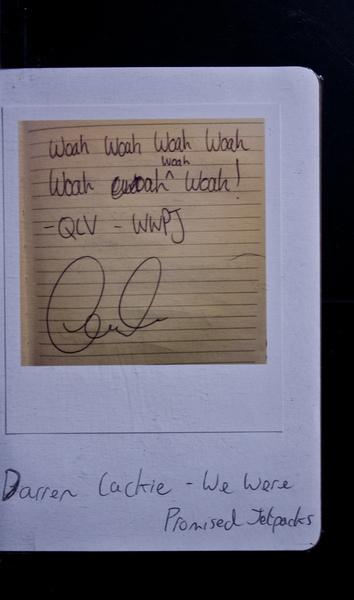 Woah Woah Woah Woah
Woah Woah Woah Woah!
- QLV - WWPJ
Darren Lackie - We Were
Promised Jetpacks